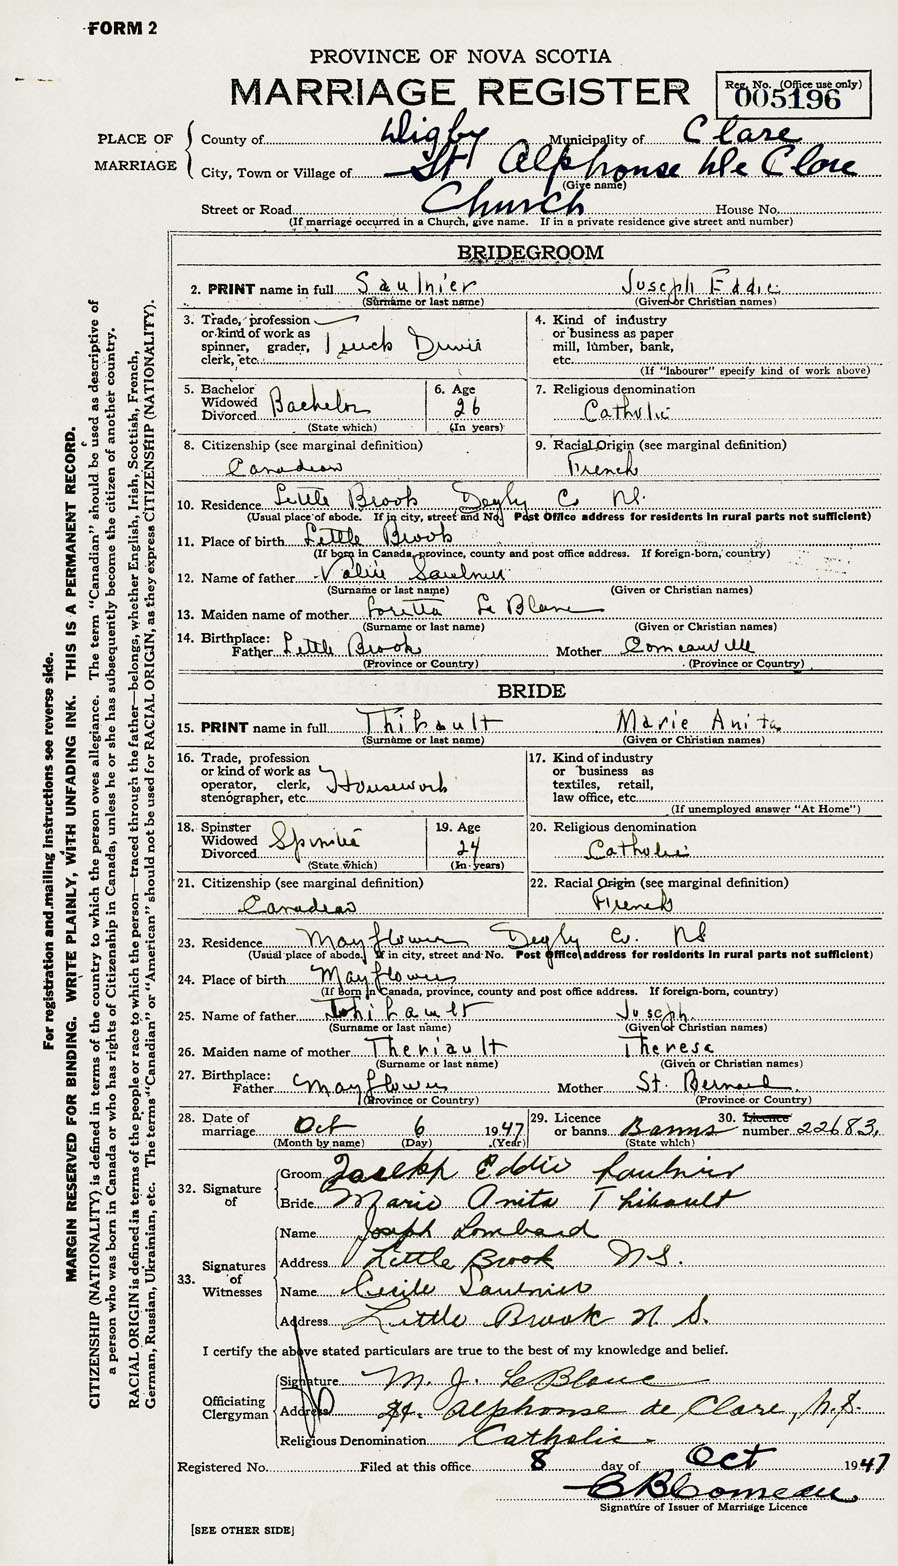 FORM 2
PROVINCE OF NOVA SCOTIA
MARRIAGE REGISTER
Reg. No. (Office use only)
005196
PLACE OF MARRIAGE
County of Digby Municipality of Clare
City, Town or Village of St Alphonse De Clare
(Give name)
Street or Road Church House No.
(If marriage occurred in a Church, give name. If in a private residence give street and number)
BRIDEGROOM
2. PRINT name in full Saulnier Joseph Eddie
(Surname or last name) (Given or Christian names)
3. Trade, profession or kind of work as spinner, grader, clerk, etc. Truck Driver
4. Kind of industry or business as paper mill, lumber, bank, etc.
(If "labourer" specify kind of work above)
5. Bachelor Widowed Divorced Bachelor
(State which)
6. Age 26
(In years)
7. Religious denomination Catholic
8. Citizenship (see marginal definition) Canadian
9. Racial Origin (see marginal definition) French
10. Residence Little Brook Digby Co NS.
(Usual place of abode. If in city, street and No. Post Office address for residents in rural parts not sufficient)
11. Place of birth Little Brook
(If born in Canada, province, county and post office address. If foreign-born, country)
12. Name of father Saulnier
(Surname or last name) (Given or Christian names)
13. Maiden name of mother Loretta Le Blanc
(Surname or last name) (Given or Christian names)
14. Birthplace: Father Little Brook Mother Comeauville
(Province or Country) (Province or Country)
BRIDE
15. PRINT name in full Thibault Marie Anita
(Surname or last name) (Given or Christian names)
16. Trade, profession or kind of work as operator, clerk, stenographer, etc. Housework
17. Kind of industry or business as textiles, retail, law office, etc.
(If unemployed answer "At Home")
18. Spinster Widowed Divorced Spinster
(State which)
19. Age 24
(In years)
20. Religious denomination Catholic
21. Citizenship (see marginal definition) Canadian
22. Racial Origin (see marginal definition) French
23. Residence Mayflower Digby Co. NS
(Usual place of abode. If in city, street and No. Post Office address for residents in rural parts not sufficient)
24. Place of birth Mayflower
(If Born in Canada, province, county and post office address. If foreign-born, country)
25. Name of father Thibault Joseph
(Surname or last name) (Given or Christian names)
26. Maiden name of mother Theriault Therese
(Surname or last name) (Given or Christian names)
27. Birthplace: Father Mayflower Mother St. Bernard
(Province or Country) (Province or Country)
28. Date of marriage Oct 6 1947
(Month by name) (Day) (Year)
29. Licence or banns Banns
(State which)
30. Licence number 22683.
32. Signature of
Groom Joseph Eddie Saulnier
Bride Marie Anita Thibault
33. Signatures of Witnesses
Name Joseph Lombard
Address Little Brook N.S.
Name Cecile Saulnier
Address Little Brook N. S.
I certify the above stated particulars are true to the best of my knowledge and belief.
Officiating Clergyman
Signature M. J. LeBlanc
Address St. Alphonse de Clare, N.S.
Religious Denomination Catholic
Registered No. Filed at this office 8 day of Oct 1947
C B Comeau
Signature of Issuer of Marriage Licence
[SEE OTHER SIDE]
For registration and mailing instructions see reverse side.
MARGIN RESERVED FOR BINDING. WRITE PLAINLY, WITH UNFADING INK. THIS IS A PERMANENT RECORD.
CITIZENSHIP (NATIONALITY) is defined in terms of the country to which the person owes allegiance. The term "Canadian" should be used as descriptive of
a person who was born in Canada or who has rights of Citizenship in Canada, unless he or she has subsequently become the citizen of another country.
RACIAL ORIGIN is defined in terms of the people or race to which the person—traced through the father—belongs, whether English, Irish, Scottish, French,
German, Russian, Ukrainian, etc. The terms "Canadian" or "American" should not be used for RACIAL ORIGIN, as they express CITIZENSHIP (NATIONALITY).